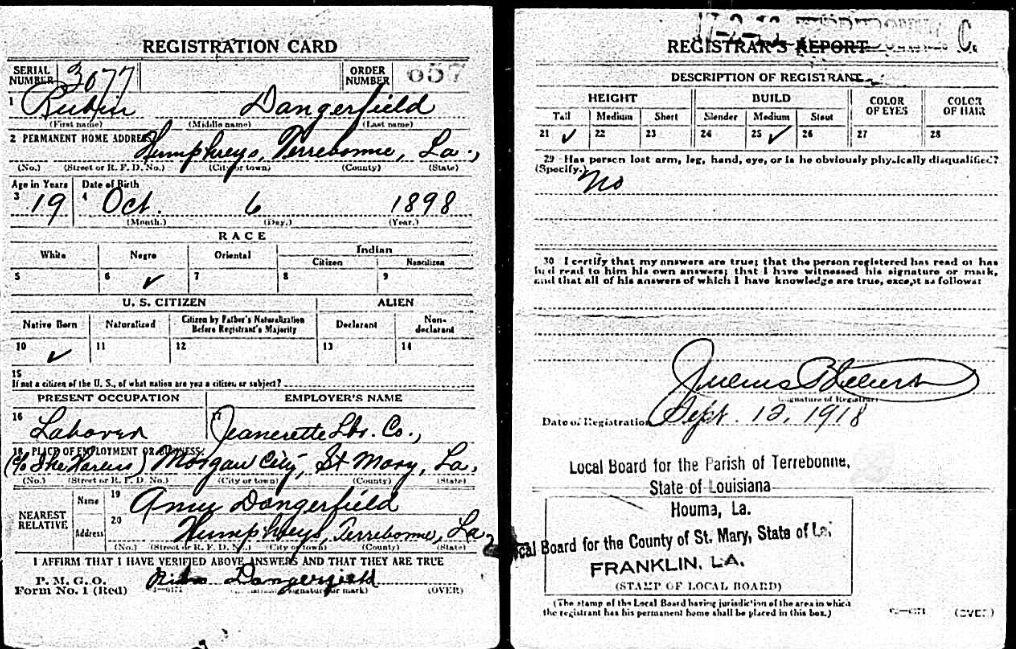 REGISTRATION CARD
SERIAL NUMBER 3077 ORDER NUMBER 657
1 Rubin Dangerfield
(First name) (Middle name) (Last name)
2 PERMANENT HOME ADDRESS Humphreys, Terrebonne, La.,
(No.) (Street or R. F. D. No.) (City or town) (County) (State)
Age in Years Date of Birth
3 19 4 Oct. 6 1898
(Month.) (Day.) (Year.)
RACE
White Negro Oriental Indian
Citizen Noncitizen
5 6 ✓ 7 8 9
U. S. CITIZEN ALIEN
Native Born Naturalized Citizen by Father's Naturalization Before Registrant's Majority Declarant Non-declarant
10 ✓ 11 12 13 14
15
If not a citizen of the U. S., of what nation are you a citizen or subject?
PRESENT OCCUPATION EMPLOYER'S NAME
16 Laborer 17 Jeanerette Lbr. Co.,
18 PLACE OF EMPLOYMENT OR BUSINESS:
Morgan City, St Mary, La.
(No.) (Street or R. F. D. No.) (City or town) (County) (State)
NEAREST RELATIVE Name 19 Dangerfield
Address 20 Humphreys, Terrebonne, La.
(No.) (Street or R. F. D. No.) (City or town) (County) (State)
I AFFIRM THAT I HAVE VERIFIED ABOVE ANSWERS AND THAT THEY ARE TRUE
P. M. G. O.
Form No. 1 (Red) Dangerfield
(Registrant's signature or mark) (OVER)
REGISTRAR'S REPORT C.
DESCRIPTION OF REGISTRANT
HEIGHT BUILD COLOR OF EYES COLOR OF HAIR
Tall Medium Short Slender Medium Stout
21 ✓ 22 23 24 25 ✓ 26 27 28
29 Has person lost arm, leg, hand, eye, or is he obviously physically disqualified?
(Specify.) No
30 I certify that my answers are true; that the person registered has read or has
had read to him his own answers; that I have witnessed his signature or mark,
and that all of his answers of which I have knowledge are true, except as follows:
(Signature of Registrar)
Date of Registration Sept. 12, 1918
Local Board for the Parish of Terrebonne,
State of Louisiana
Houma, La.
cal Board for the County of St. Mary, State of La.
FRANKLIN, LA.
(STAMP OF LOCAL BOARD)
(The stamp of the Local Board having jurisdiction of the area in which
the registrant has his permanent home shall be placed in this box.)
(OVER)